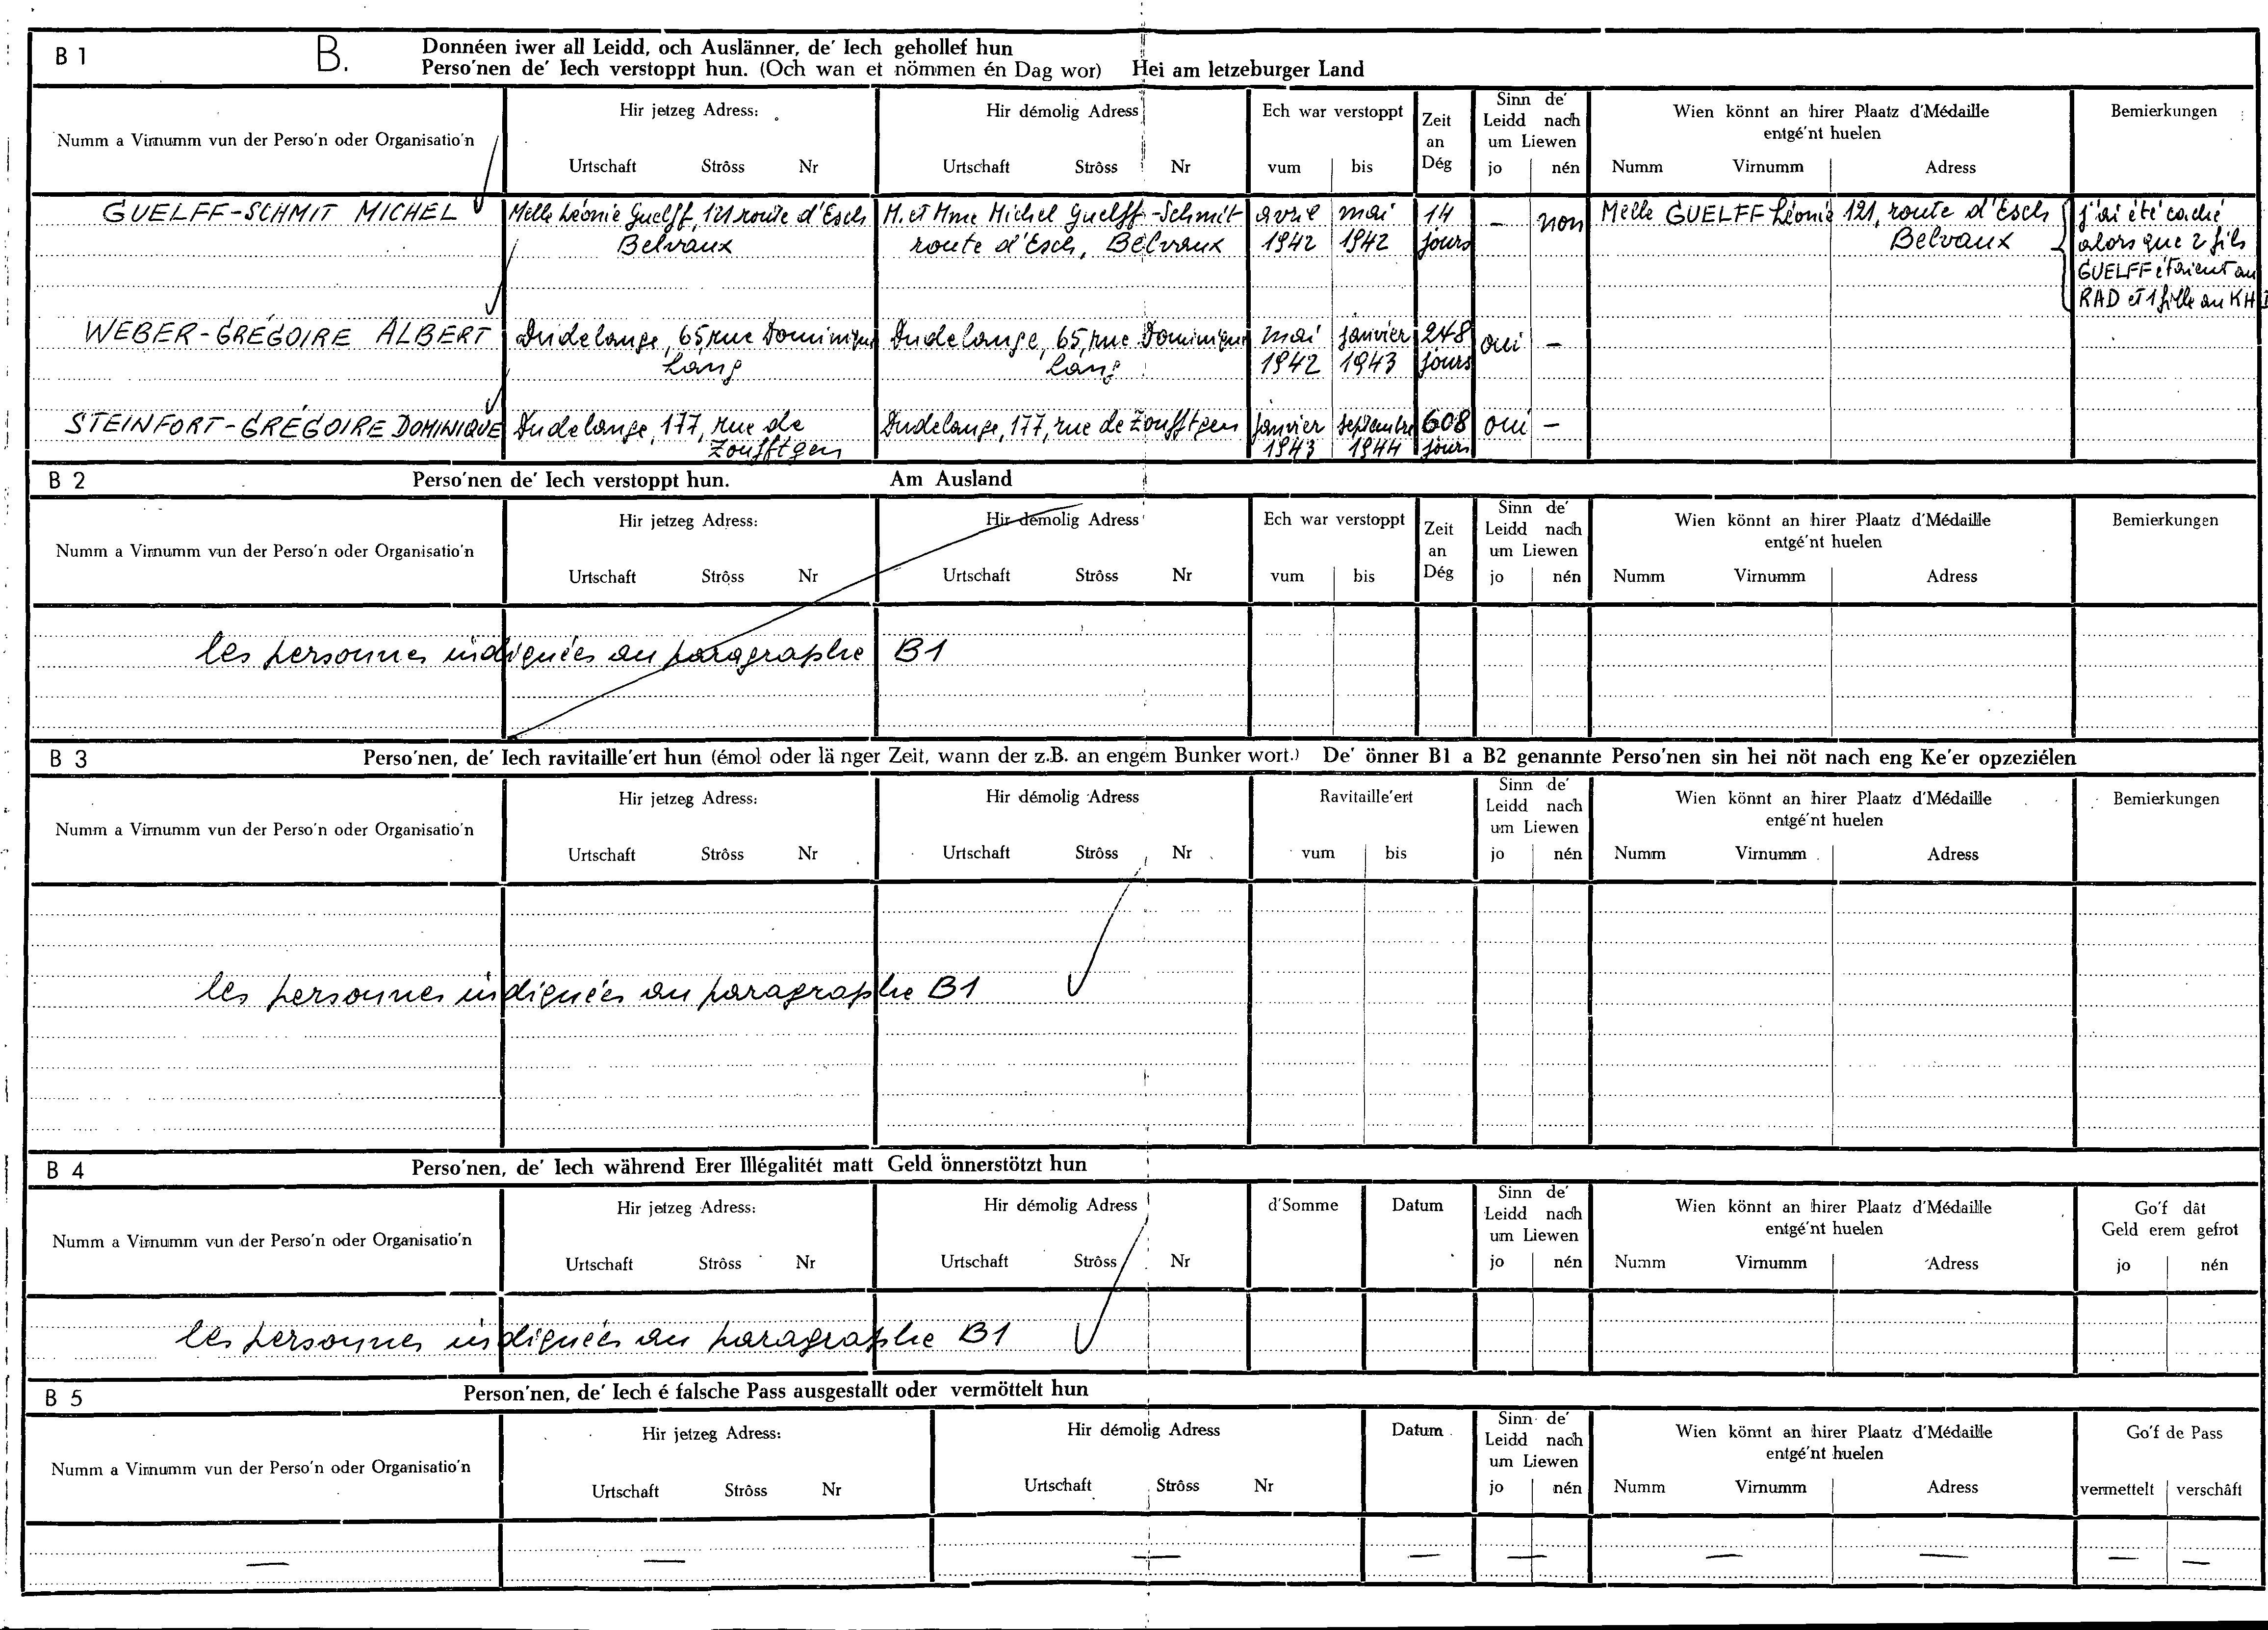 B 1
B.
Donnéen iwer all Leidd, och Auslänner, de' Iech gehollef hun
Perso'nen de' Iech verstoppt hun. (Och wan et nömmen én Dag wor) Hei am letzeburger Land
Numm a Virnumm vun der Perso'n oder Organisatio'n
Hir jetzeg Adress:
Urtschaft Strôss Nr
Hir démolig Adress
Urtschaft Strôss Nr
Ech war verstoppt
vum bis
Zeit
an
Dég
Sinn de'
Leidd nach
um Liewen
jo nén
Wien könnt an hirer Plaatz d'Médaille
entgé'nt huelen
Numm Virnumm Adress
Bemierkungen
GUELFF-SCHMIT MICHEL
Melle Léonie Guelff, 121 route d'Esch
Belvaux
M. et Mme Michel Guelff-Schmit
route d'Esch, Belvaux
avril
1942
mai
1942
14
jours
–
non
Melle GUELFF Léonie
121, route d'Esch
Belvaux
j'ai été caché
alors que 2 fils
GUELFF étaient au
RAD et 1 fille au KHD
WEBER-GRÉGOIRE ALBERT
Dudelange, 65, rue Dominique
Lang
Dudelange, 65, rue Dominique
Lang
mai
1942
janvier
1943
248
jours
oui
–
STEINFORT-GRÉGOIRE DOMINIQUE
Dudelange, 177, rue de
Zoufftgen
Dudelange, 177, rue de Zoufftgen
janvier
1943
septembre
1944
608
jours
oui
–
B 2
Perso'nen de' Iech verstoppt hun. Am Ausland
Numm a Virnumm vun der Perso'n oder Organisatio'n
Hir jetzeg Adress:
Urtschaft Strôss Nr
Hir démolig Adress
Urtschaft Strôss Nr
Ech war verstoppt
vum bis
Zeit
an
Dég
Sinn de'
Leidd nach
um Liewen
jo nén
Wien könnt an hirer Plaatz d'Médaille
entgé'nt huelen
Numm Virnumm Adress
Bemierkungen
les personnes indiquées au paragraphe B1
B 3
Perso'nen, de' Iech ravitaille'ert hun (émol oder länger Zeit, wann der z.B. an engem Bunker wort.) De' önner B1 a B2 genannte Perso'nen sin hei nöt nach eng Ke'er opzeziélen
Numm a Virnumm vun der Perso'n oder Organisatio'n
Hir jetzeg Adress:
Urtschaft Strôss Nr
Hir démolig Adress
Urtschaft Strôss Nr
Ravitaille'ert
vum bis
Sinn de'
Leidd nach
um Liewen
jo nén
Wien könnt an hirer Plaatz d'Médaille
entgé'nt huelen
Numm Virnumm Adress
Bemierkungen
les personnes indiquées au paragraphe B1
B 4
Perso'nen, de' Iech während Erer Illégalitét matt Geld önnerstötzt hun
Numm a Virnumm vun der Perso'n oder Organisatio'n
Hir jetzeg Adress:
Urtschaft Strôss Nr
Hir démolig Adress
Urtschaft Strôss Nr
d'Somme
Datum
Sinn de'
Leidd nach
um Liewen
jo nén
Wien könnt an hirer Plaatz d'Médaille
entgé'nt huelen
Numm Virnumm Adress
Go'f dât
Geld erem gefrot
jo nén
les personnes indiquées au paragraphe B1
B 5
Person'nen, de' Iech é falsche Pass ausgestallt oder vermöttelt hun
Numm a Virnumm vun der Perso'n oder Organisatio'n
Hir jetzeg Adress:
Urtschaft Strôss Nr
Hir démolig Adress
Urtschaft Strôss Nr
Datum
Sinn de'
Leidd nach
um Liewen
jo nén
Wien könnt an hirer Plaatz d'Médaille
entgé'nt huelen
Numm Virnumm Adress
Go'f de Pass
vermettelt verschâft
— — — — — — — — —